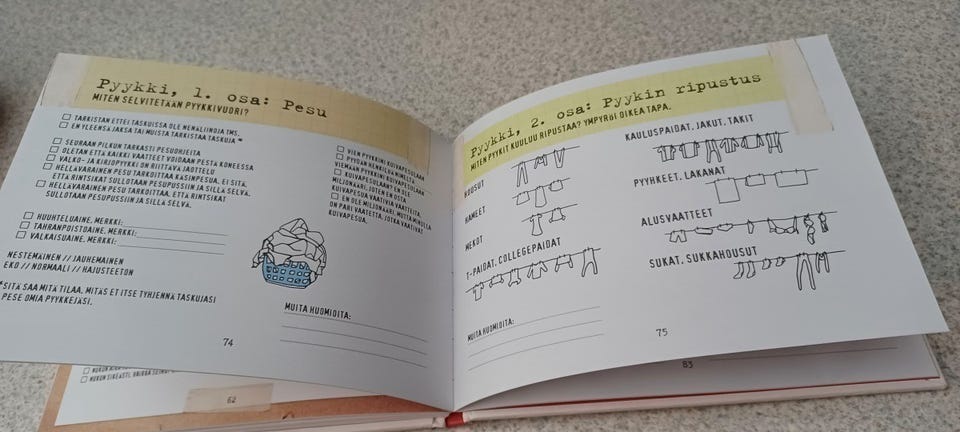 Pyykki, 1. osa: Pesu
MITEN SELVITETÄÄN PYYKKIVUORI?
TARKISTAN ETTEI TASKUISSA OLE NENÄLIINOJA TMS.
EN YLEENSÄ JAKSA TAI MUISTA TARKISTAA TASKUJA *
SEURAAN PILKUN TARKASTI PESUOHJEITA
OLETAN ETTÄ KAIKKI VAATTEET VOIDAAN PESTÄ KONEESSA
VALKO- JA KIRJOPYYKKI ON RIITTÄVÄ JAOTTELU
HELLÄVARAINEN PESU TARKOITTAA KÄSINPESUA, EI SITÄ,
ETTÄ RINTSIKAT SULLOTAAN PESUPUSSIIN JA SILLÄ SELVÄ.
HELLÄVARAINEN PESU TARKOITTAA, ETTÄ RINTSIKAT
SULLOTAAN PESUPUSSIIN JA SILLÄ SELVÄ.
HUUHTELUAINE, MERKKI:
TAHRANPOISTOAINE, MERKKI:
VALKAISUAINE, MERKKI:
NESTEMÄINEN // JAUHEMAINEN
EKO // NORMAALI // HAJUSTEETON
*SITÄ SAA MITÄ TILAA. MITÄS ET ITSE TYHJENNÄ TASKUJASI
PESE OMIA PYYKKEJÄSI.
VIEN PYYKKINI KUIVAPESULAAN
PYYDÄN HENKILÖÄ NIMELTÄ
VIEMÄÄN PYYKKINI KUIVAPESULAAN
KUIVAPESULAAN? EN OLE
MILJONÄÄRI, JOTEN EN OSTA
KUIVAPESUA VAATIVIA VAATTEITA.
EN OLE MILJONÄÄRI, MUTTA MINULLA
ON PARI VAATETTA, JOTKA VAATIVAT
KUIVAPESUA.
MUITA HUOMIOITA:
74
Pyykki, 2. osa: Pyykin ripustus
MITEN PYYKIT KUULUU RIPUSTAA? YMPYRÖI OIKEA TAPA.
HOUSUT
HAMEET
MEKOT
T-PAIDAT, COLLEGEPAIDAT
KAULUSPAIDAT, JAKUT, TAKIT
PYYHKEET, LAKANAT
ALUSVAATTEET
SUKAT, SUKKAHOUSUT
MUITA HUOMIOITA:
75
62
83